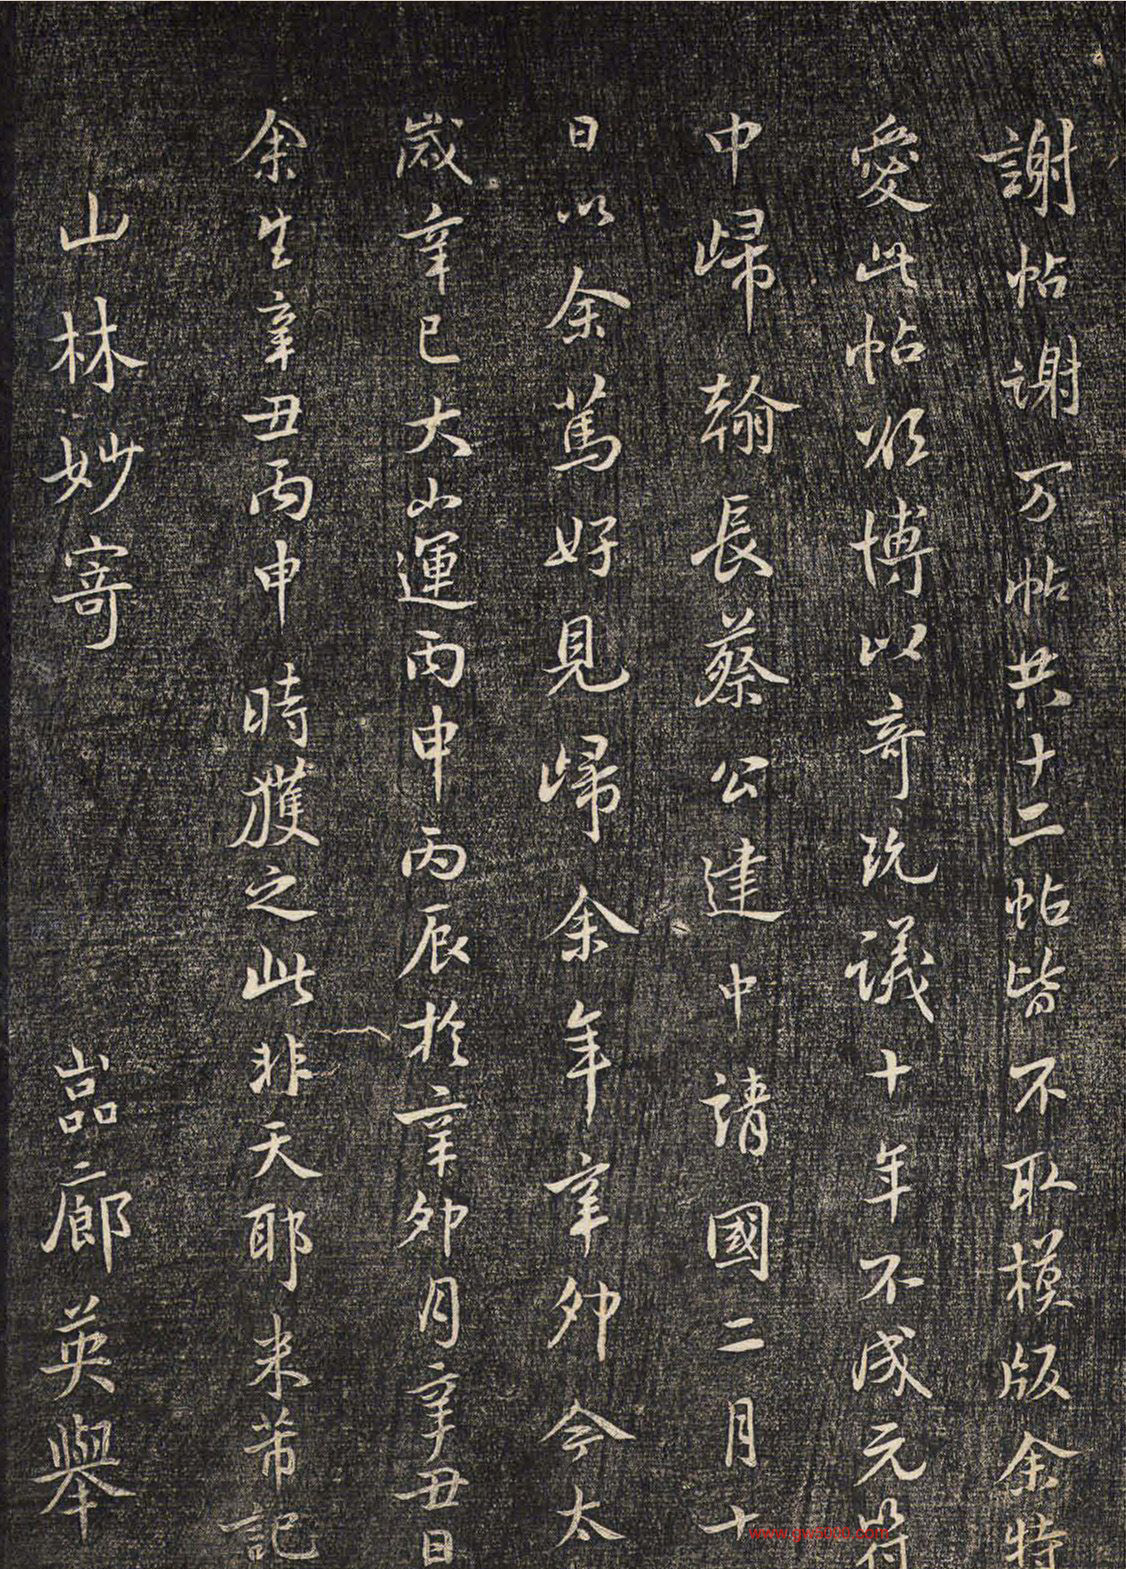 謝帖謝万帖共十二帖皆不取模版余特
愛此帖欲博以奇玩議十年不成元符
中歸翰長蔡公建中靖國二月十
日以余篤好見歸余年辛卯今太
歲辛巳大小運丙申丙辰於辛卯月辛丑日
余生辛丑丙申時獲之此非天耶米芾記
山林妙寄
嵓廊英舉
www.yac8000.com